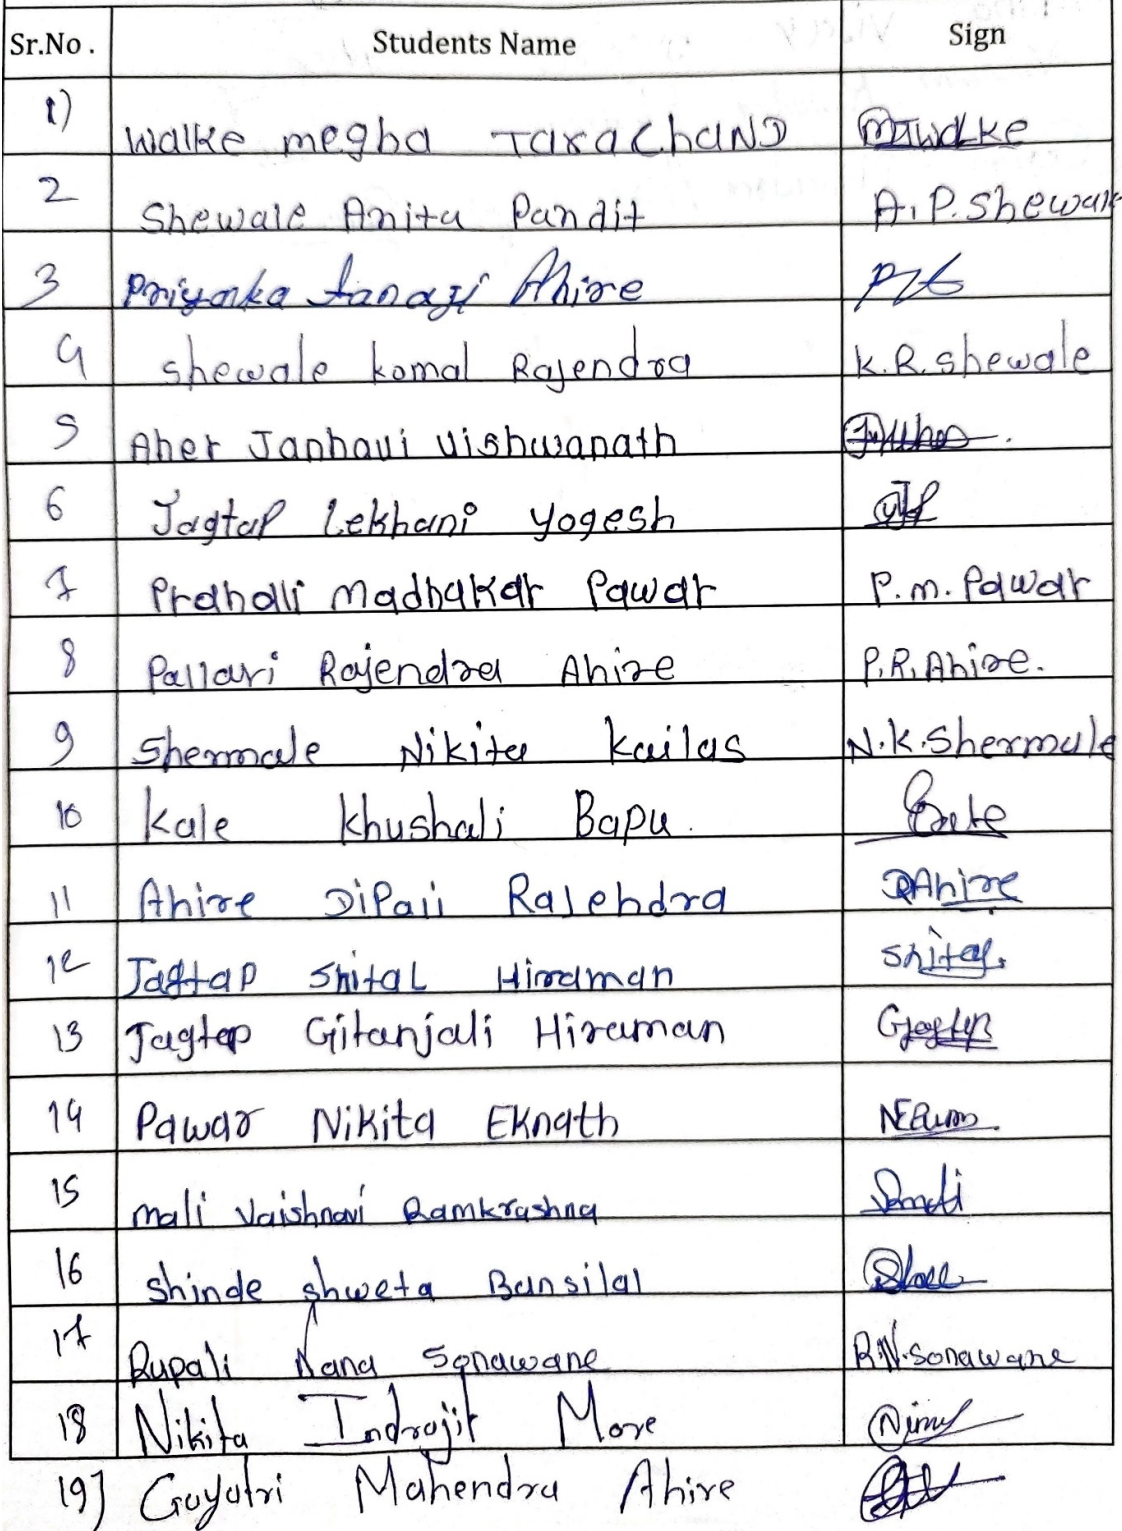 Sr.No. Students Name Sign
1) Walke megha TaraChaND MTWalke
2 Shewale Anita Pandit A.P.Shewale
3 Priyanka tanaji Ahire
4 shewale komal Rajendra K.R.shewale
5 Aher Janhavi Vishwanath
6 Jagtap Lekhani yogesh
7 Prahali Madhakar Pawar P.m.Pawar
8 Pallavi Rajendra Ahire P.R.Ahire.
9 Shermale Nikita Kailas N.K.Shermale
10 Kale Khushali Bapu.
11 Ahire DiPali Rajehdra DAhire
12 Jagtap Shital Hiraman Shital.
13 Jagtap Gitanjali Hiraman GJagtap
14 Pawar Nikita EKnath
15 mali Vaishnavi Ramkrashna
16 shinde shweta Bansilal
17 Rupali Nana Sonawane R.N.Sonawane
18 Nikita Indrajit More
19] Gayatri Mahendra Ahire